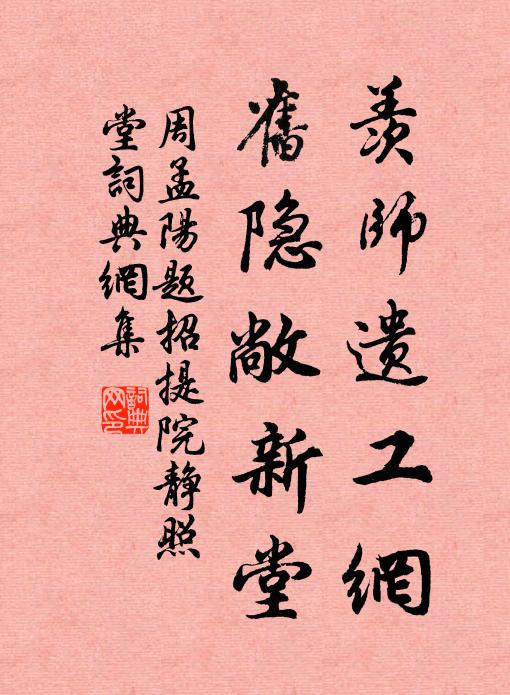 羨師遺工網
舊隐敞新堂
周孟陽题招提院静照
堂詞典網集
詞典网印